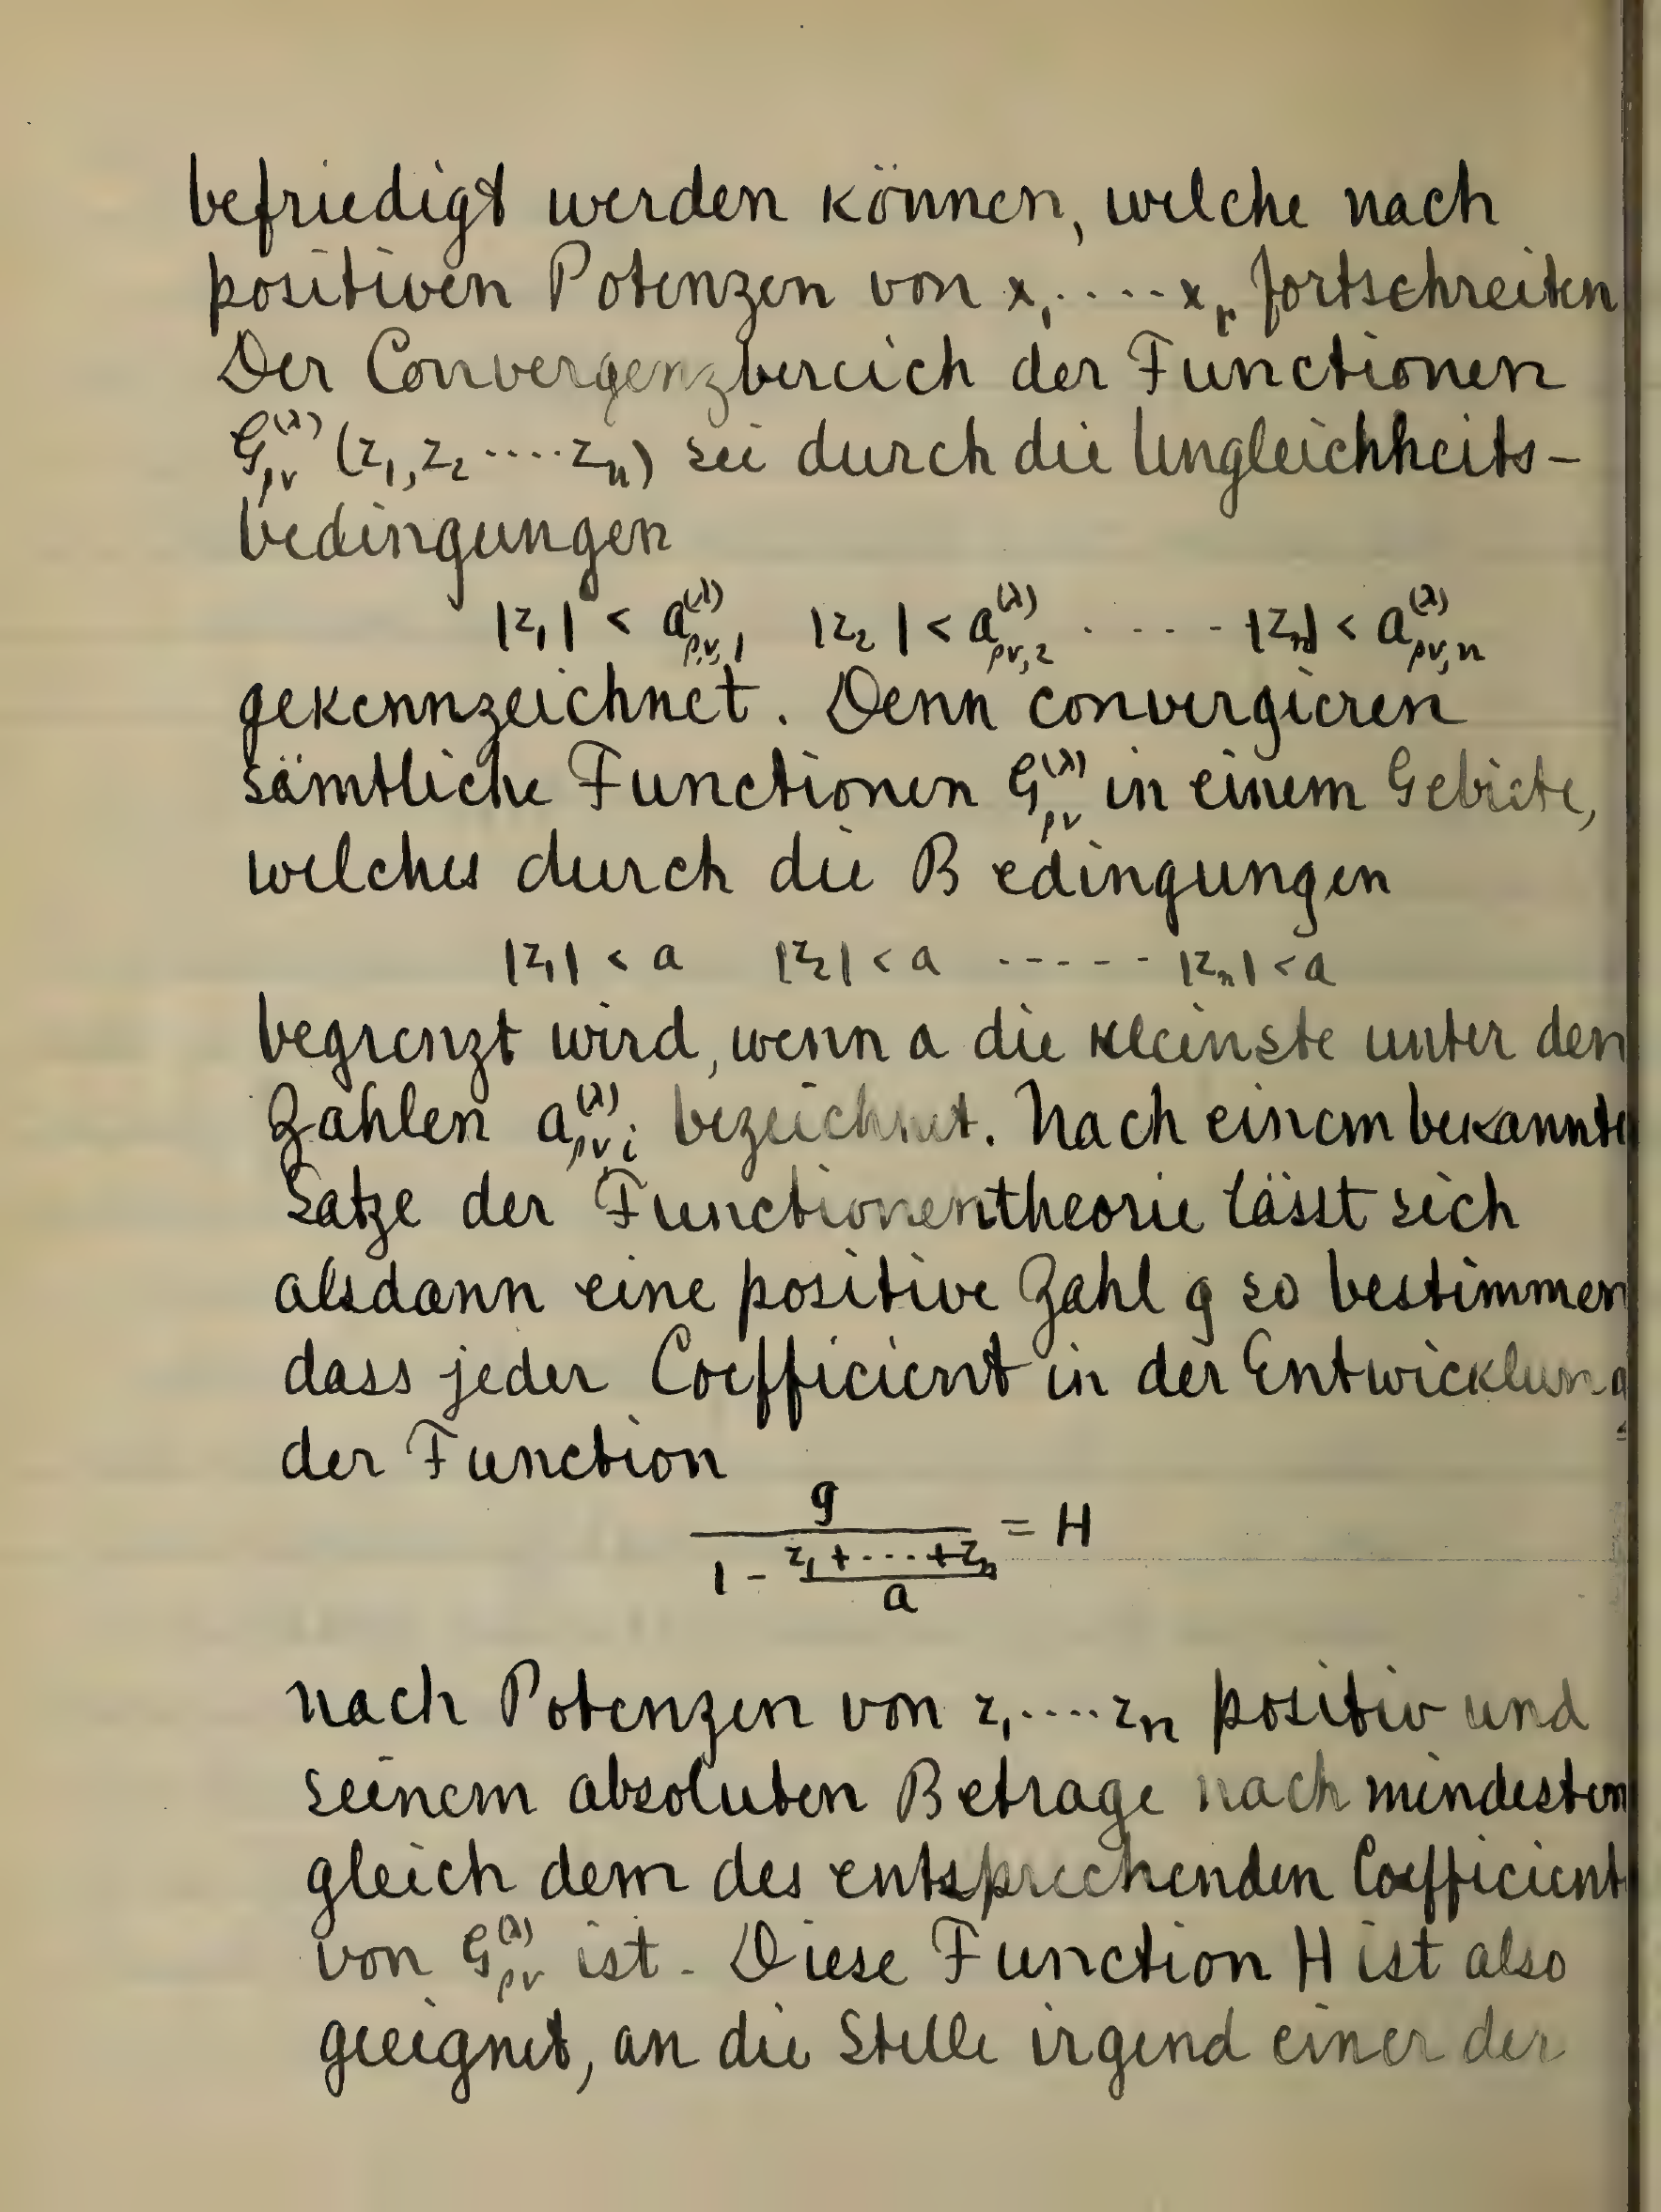 befriedigt werden können, welche nach
positiven Potenzen von x₁ ····· xᵣ fortschreiten
Der Convergenzbereich der Functionen
G_{ρν}^{(λ)} (z₁, z₂ ···· zₙ) sei durch die Ungleichheits-
bedingungen
|z₁| < a_{ρν,1}^{(λ)} |z₂| < a_{ρν,2}^{(λ)} · · · · - |zₙ| < a_{ρν,n}^{(λ)}
gekennzeichnet. Denn convergieren
sämtliche Functionen G_{ρν}^{(λ)} in einem Gebiete,
welches durch die Bedingungen
|z₁| < a |z₂| < a ------ |zₙ| < a
begrenzt wird, wenn a die kleinste unter den
Zahlen a_{ρν,i}^{(λ)} bezeichnet. Nach einem bekannte
Satze der Functionentheorie lässt sich
alsdann eine positive Zahl g so bestimmen
dass jeder Coefficient in der Entwicklung
der Function
\frac{g}{1 - \frac{z₁ + ··· + zₙ}{a}} = H
nach Potenzen von z₁ ···· zₙ positiv und
seinem absoluten Betrage nach mindesten
gleich dem des entsprechenden Coefficient
von G_{ρν}^{(λ)} ist. Diese Function H ist also
geeignet, an die Stelle irgend einer der